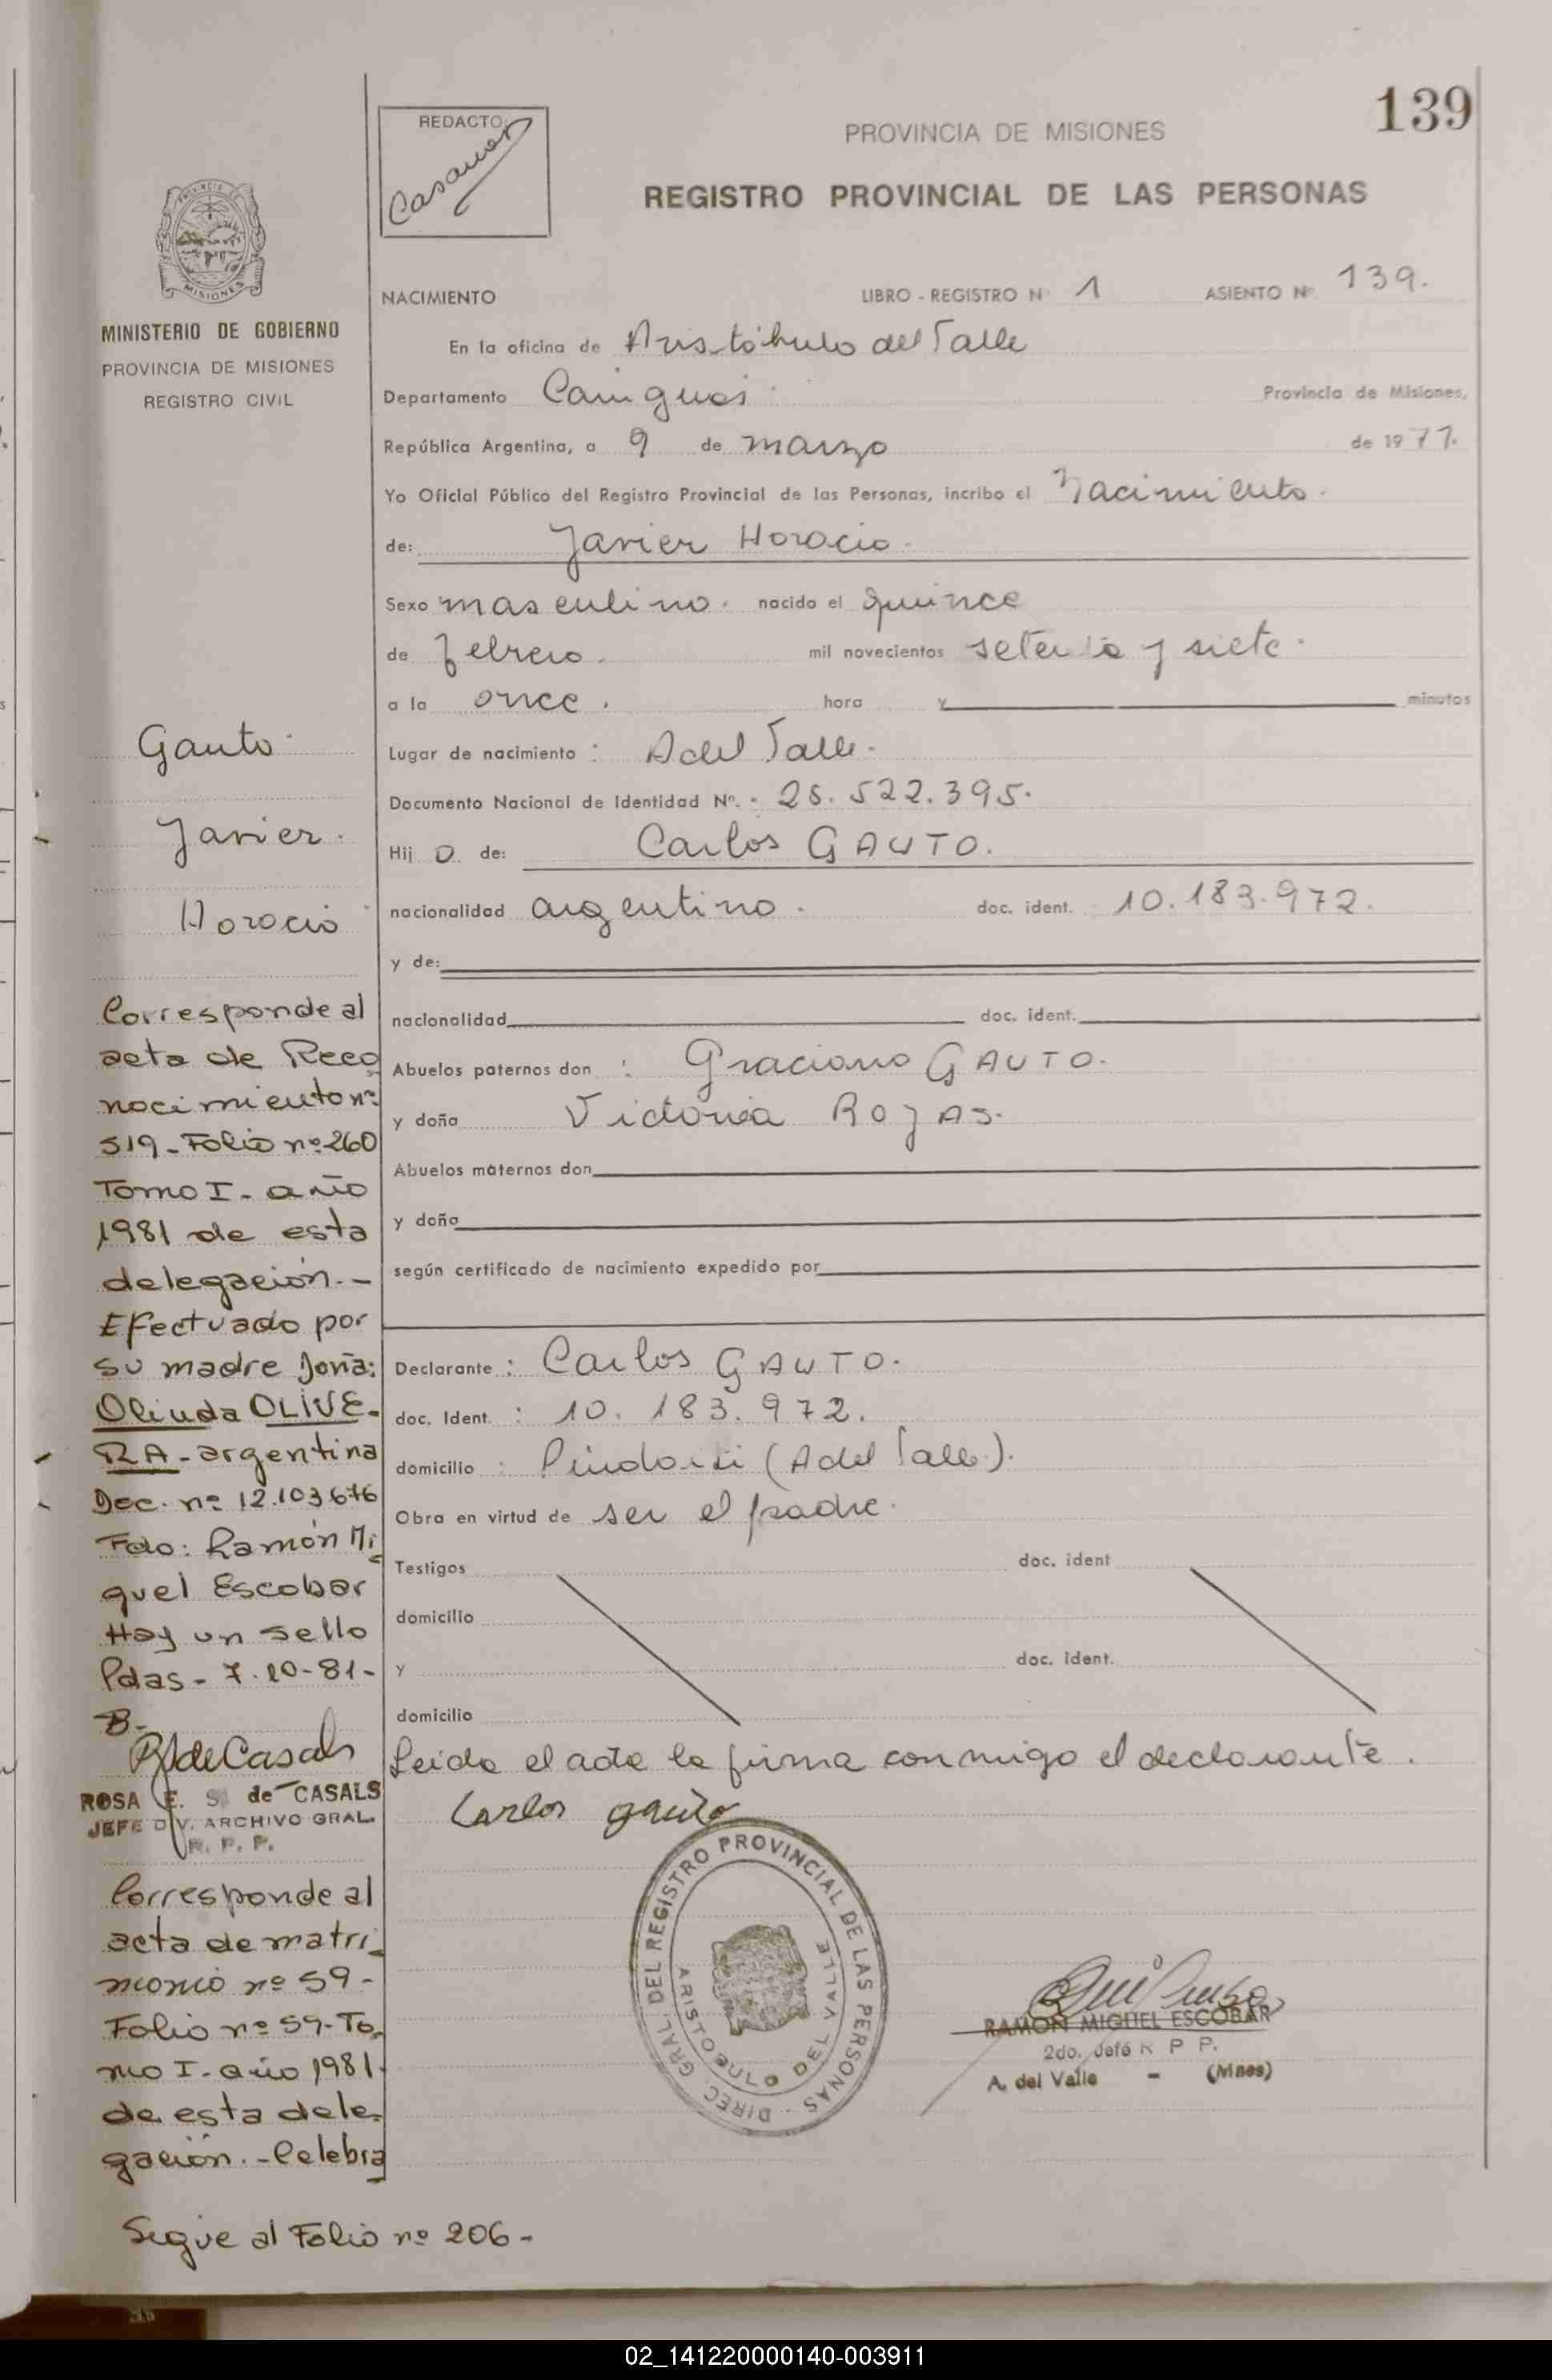 139
REDACTO
Casamor
PROVINCIA DE MISIONES
REGISTRO PROVINCIAL DE LAS PERSONAS
MISIONES
MINISTERIO DE GOBIERNO
PROVINCIA DE MISIONES
REGISTRO CIVIL
NACIMIENTO LIBRO - REGISTRO Nº 1 ASIENTO Nº 139.
En la oficina de Aristóbulo del Valle
Departamento Cainguas Provincia de Misiones,
República Argentina, a 9 de marzo de 1977.
Yo Oficial Público del Registro Provincial de las Personas, incribo el Nacimiento
de: Javier Horacio
Sexo masculino. nacido el quince
de febrero. mil novecientos setenta y siete
a la once. hora y minutos
Lugar de nacimiento : A del Valle
Documento Nacional de Identidad Nº. 25.522.395.
Hijo de: Carlos GAUTO.
nacionalidad argentino doc. ident. 10.183.972.
y de:
nacionalidad doc. ident.
Abuelos paternos don : Graciano GAUTO.
y doña Victoria ROJAS.
Abuelos maternos don
y doña
según certificado de nacimiento expedido por
Declarante : Carlos GAUTO.
doc. Ident. : 10.183.972.
domicilio : Pindoiti (A del Valle).
Obra en virtud de ser el padre
Testigos doc. ident
domicilio
y doc. ident.
domicilio
Leida el acta la firma conmigo el declarante.
Carlos gauto
DIREC. GRAL. DEL REGISTRO PROVINCIAL DE LAS PERSONAS -
ARISTOBULO DEL VALLE
RAMON MIGUEL ESCOBAR
2do. Jefe R P P.
A. del Valle - (Mnes)
Gauto
Javier
Horacio
Corresponde al
acta de Reco
nocimiento nº
519 - Folio nº 260
Tomo I - año
1981 de esta
delegación. -
Efectuado por
su madre doña:
Olinda OLIVE-
RA - argentina
Doc. nº 12.103676
Fdo: Ramón Mi
guel Escobar
Hay un sello
Pdas - 7.10-81-
B.
R de Casals
ROSA E. S. de CASALS
JEFE DIV. ARCHIVO GRAL.
R. P. P.
Corresponde al
acta de matri
monio nº 59 -
Folio nº 59 - To
mo I - año 1981
de esta dele
gación. - Celebra
Segue al Folio nº 206 -
02_141220000140-003911